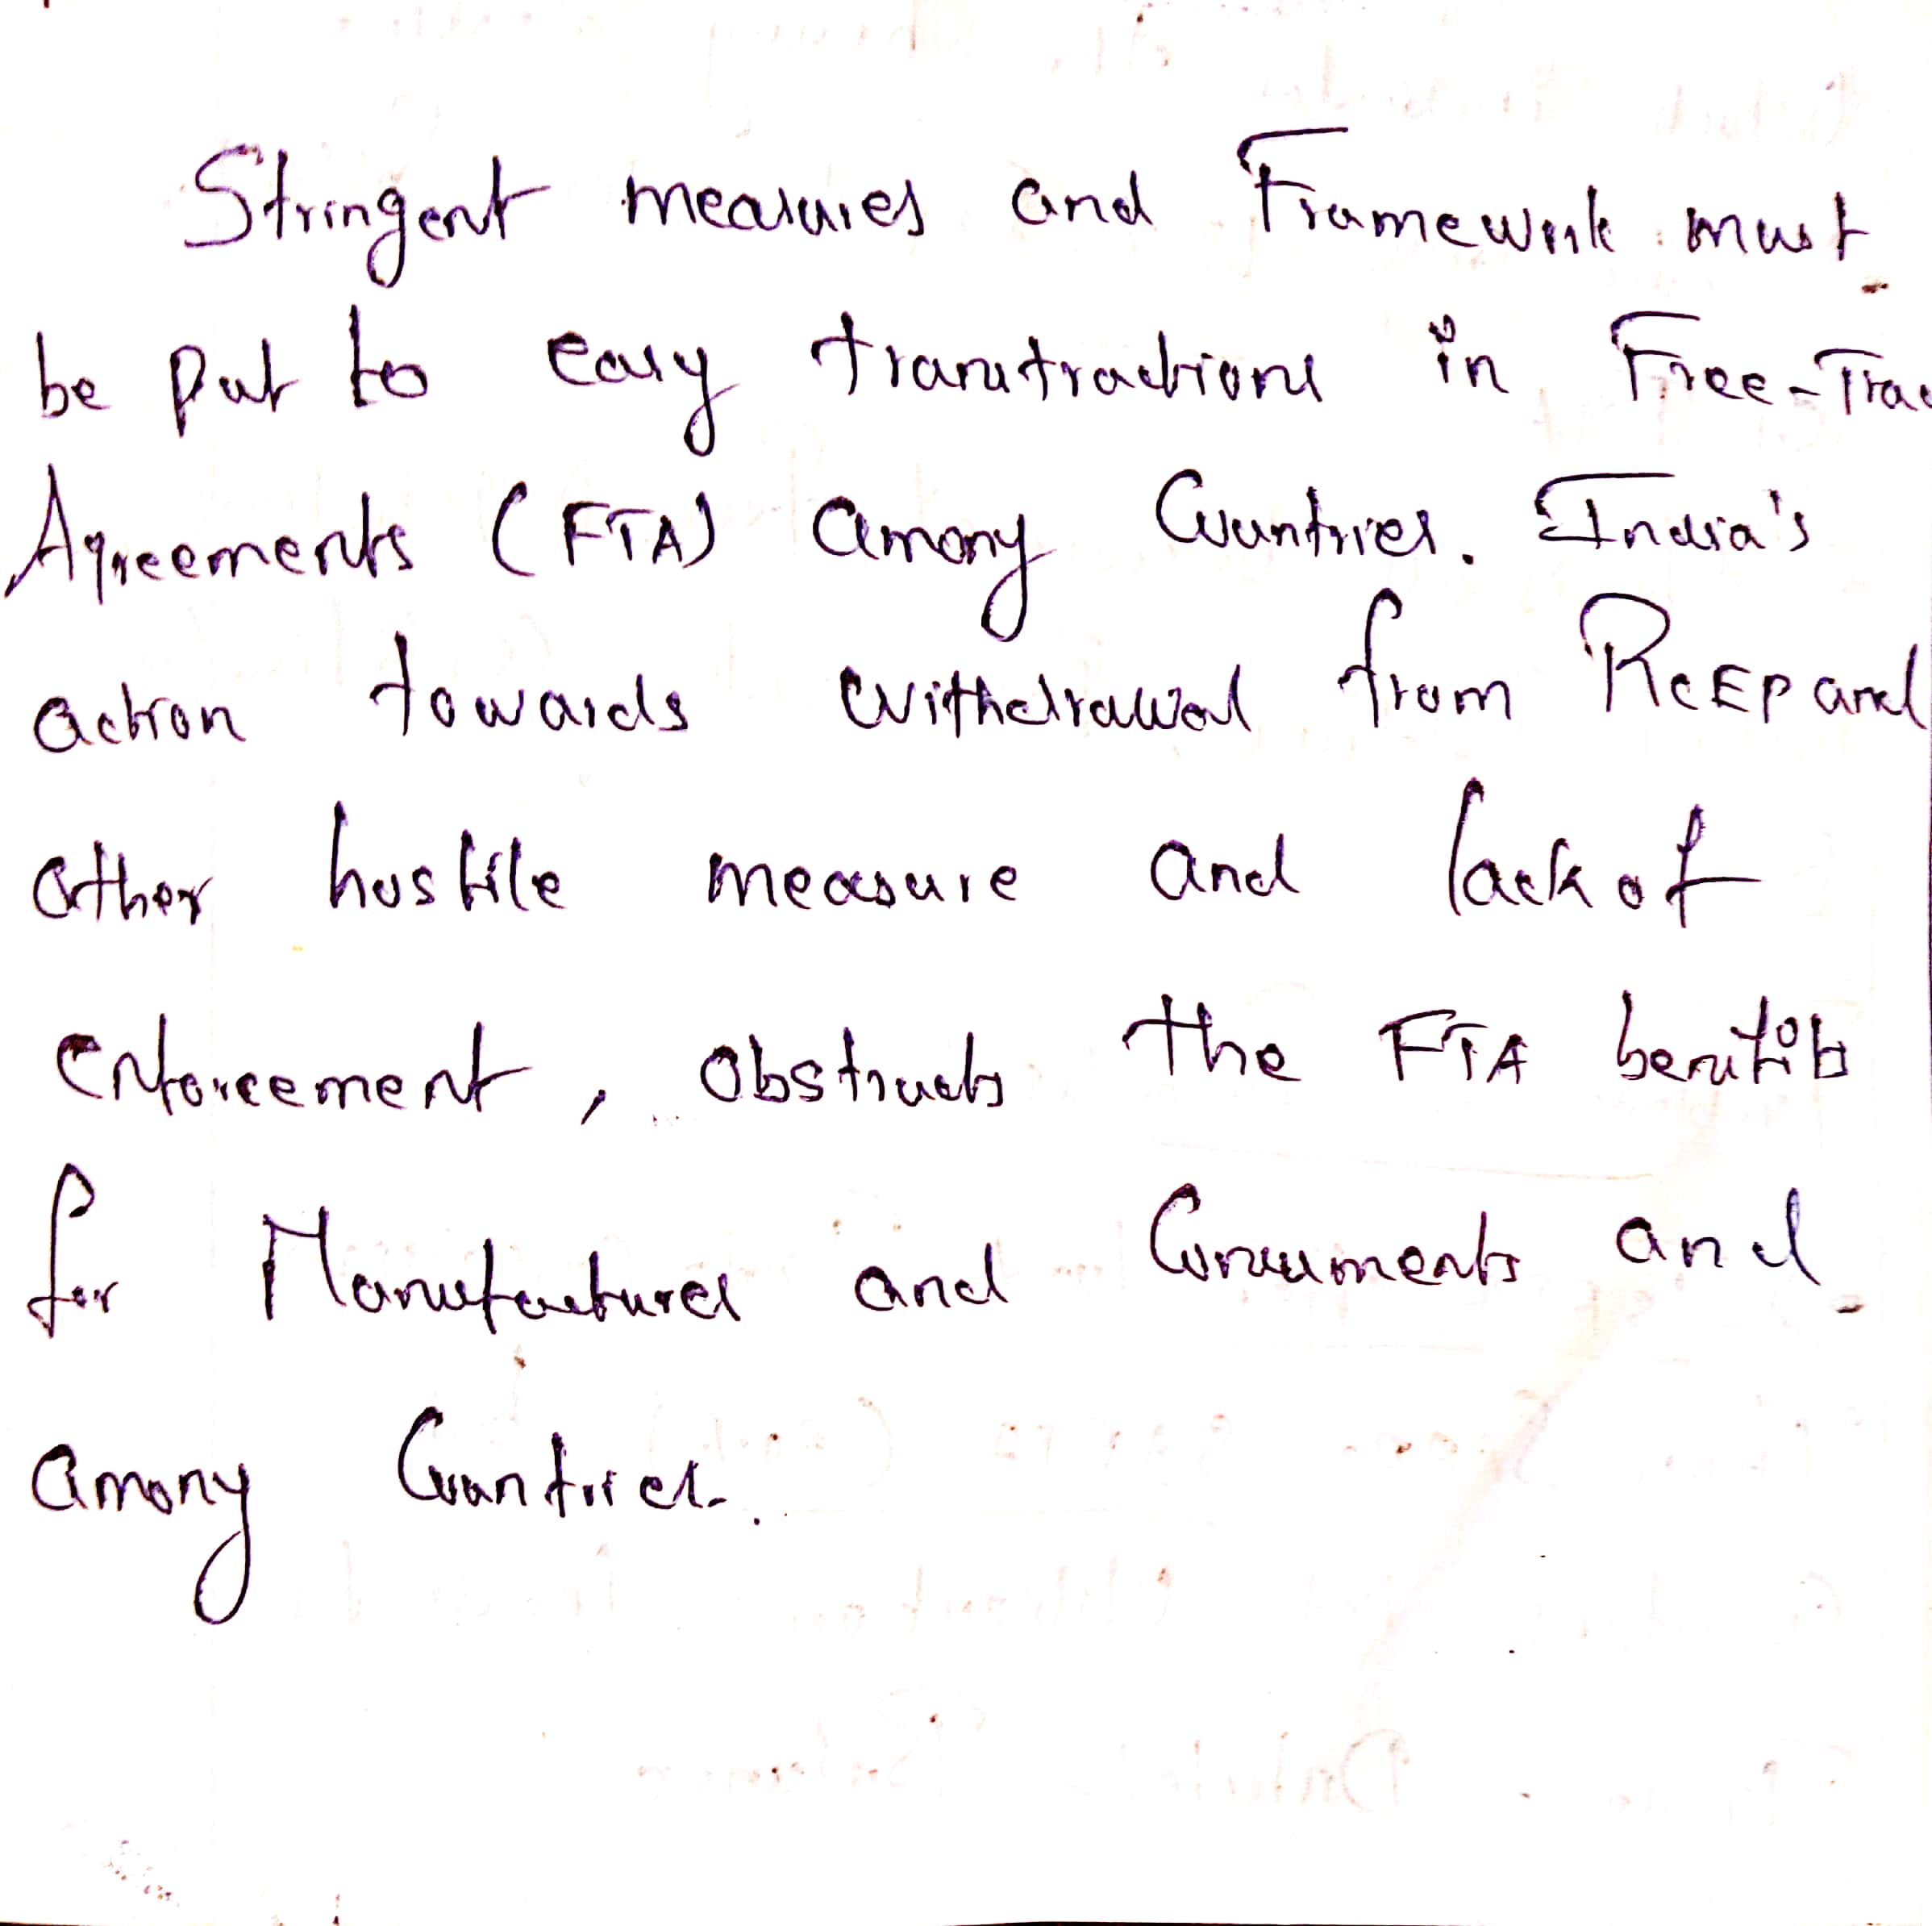 Stringent measures and Framework must
be put to easy transtractions in Free-Trad
Agreements (FTA) among Countries. India's
action towards withdrawal from RCEP and
other hostile measure and lack of
enforcement, obstructs the FTA benifits
for Manufactures and Consuments and
among Countries.